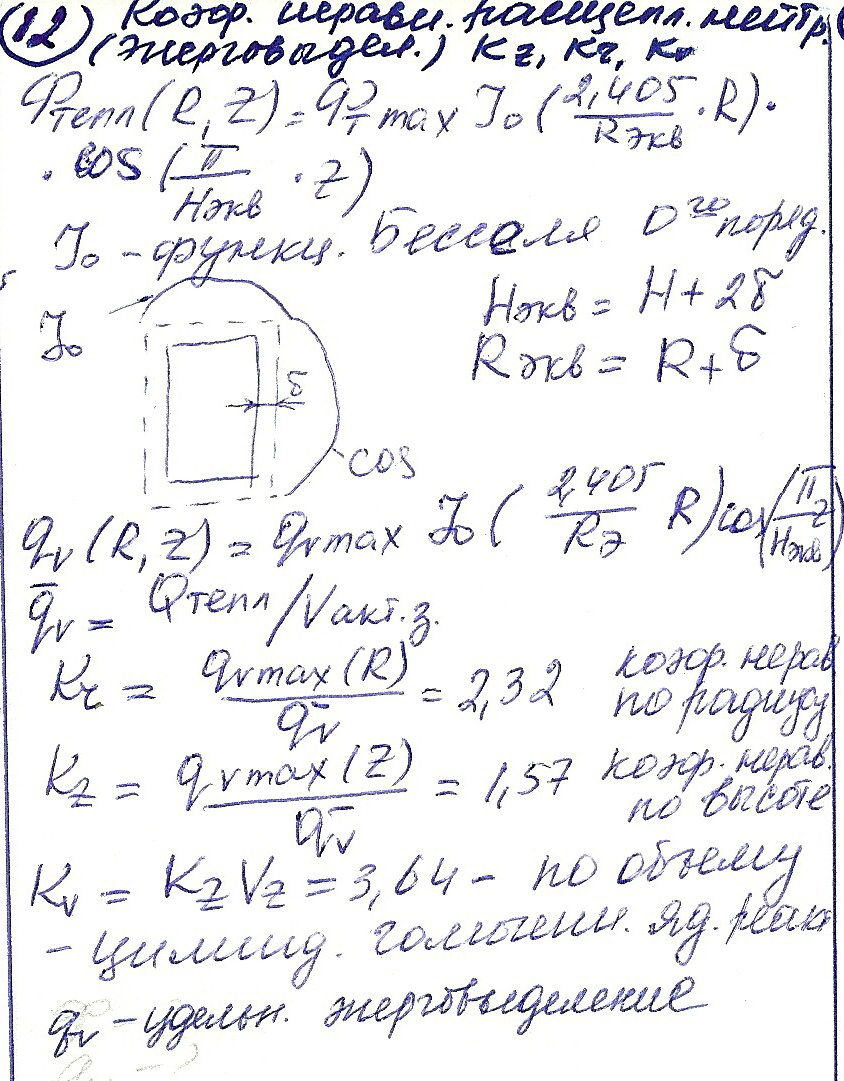 (12) Коэф. неравн. расщепл. нейтр.
(энерговыдел.) Kz, Kr, Kv
Φтепл(R, Z) = Φт max J₀ (2,405/Rэкв · R) ·
· cos (π/Hэкв · Z)
J₀ - функц. Бесселя 0го поряд.
J₀
Hэкв = H + 2δ
Rэкв = R + δ
δ
cos
qv (R, Z) = qv max J₀ (2,405/Rэ R) cos(πz/Hэкв)
q̄v = Qтепл/Vакт.з.
Kr = qv max (R)/q̄v = 2,32 коэф. нерав
по радиусу
Kz = qv max (Z)/q̄v = 1,57 коэф. нерав.
по высоте
Kv = Kz Vz = 3,64 - по объему
- цилинд. гомогенн. яд. реак
qv - удельн. энерговыделение